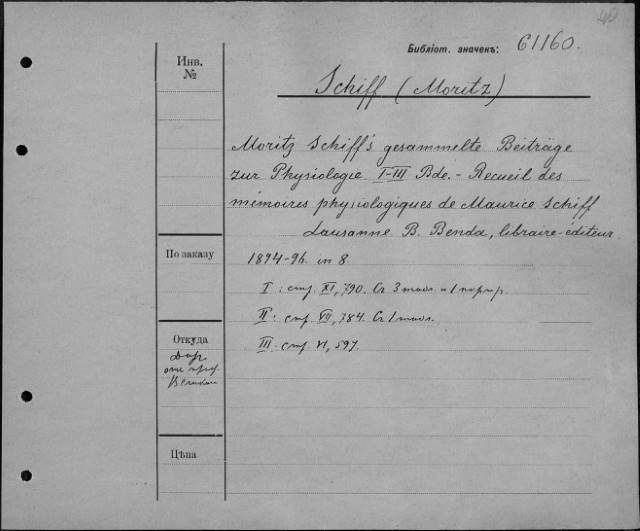 49
Библіот. значекъ: 61160.
Инв.
№
Schiff (Moritz)
Moritz Schiff's gesammelte Beiträge
zur Physiologie I-III Bde. - Recueil des
mémoires physiologiques de Maurice Schiff
Lausanne B. Benda, libraire-éditeur
По заказу
1894-96. in 8.
I: стр. XI, 790. Съ 3 табл. и 1 портр.
II: стр. VII, 784. Съ 1 табл.
Откуда
III: стр. VI, 597.
Даръ
отъ проф.
Цѣна